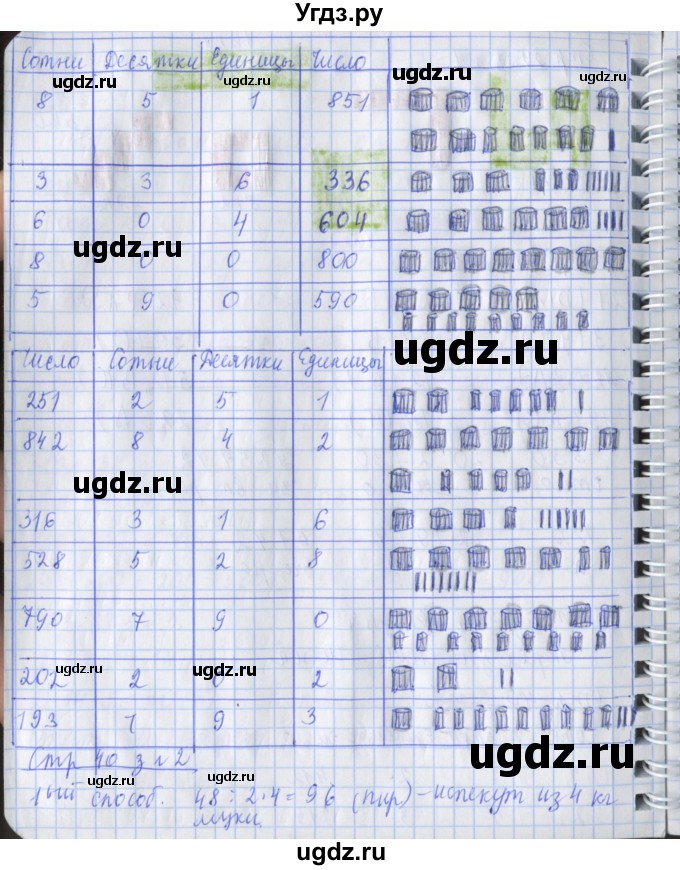 Угдз.ру
Сотни Десятки Единицы Число
8 5 1 851
3 3 6 336
6 0 4 604
8 0 0 800
5 9 0 590
Число Сотни Десятки Единицы
251 2 5 1
842 8 4 2
316 3 1 6
528 5 2 8
790 7 9 0
202 2 0 2
193 1 9 3
Стр 40 з N 2
1ый способ. 48 : 2 · 4 = 96 (пир) – испекут из 4 кг
муки
ugdz.ru
ugdz.ru
ugdz.ru
ugdz.ru
ugdz.ru
ugdz.ru
ugdz.ru
ugdz.ru
ugdz.ru
ugdz.ru
ugdz.ru
ugdz.ru
ugdz.ru